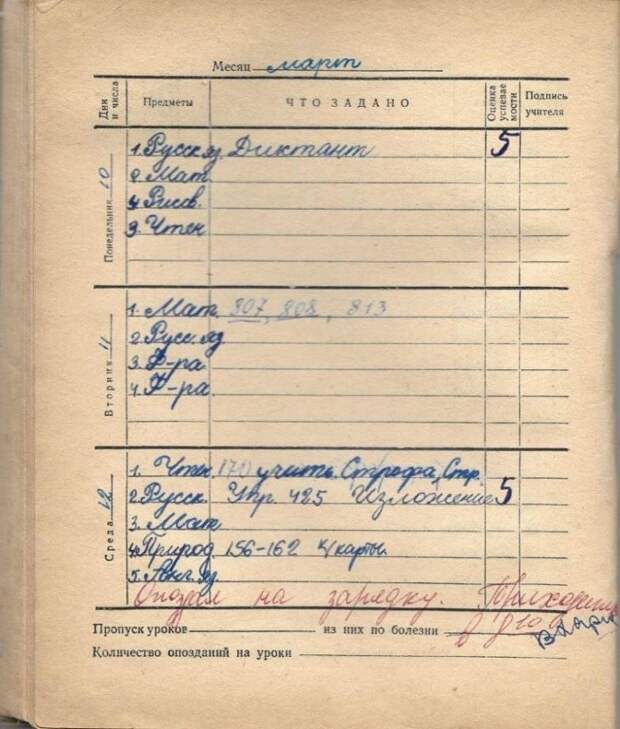 Месяц март
Дни и числа Предметы ЧТО ЗАДАНО Оценка успевае мости Подпись учителя
Понедельник 10
1. Русск яз. Диктант 5
2 Мат
4 Рисов.
3. Чтен
Вторник 11
1. Мат. 807, 808, 813
2. Русс. яз
3. Ф-ра
4. Ф-ра
Среда 12
1. Чтен. 170 учить. Строфа, Стр.
2. Русск. Упр. 425 Изложение 5
3. Мат
4. Природ 156-162 К/карты.
5. Анг. яз.
Опоздал на зарядку. Приходить
в
Пропуск уроков из них по болезни
Количество опозданий на уроки